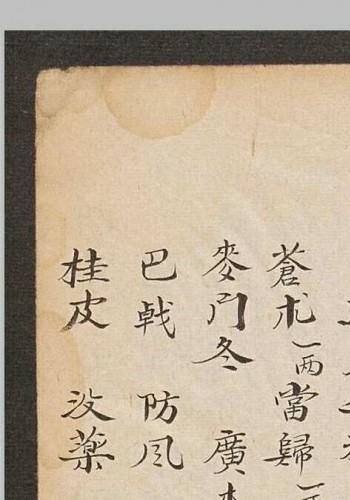 蒼朮一兩 當歸一
麥門冬 廣木
巴戟 防风
桂皮 没藥